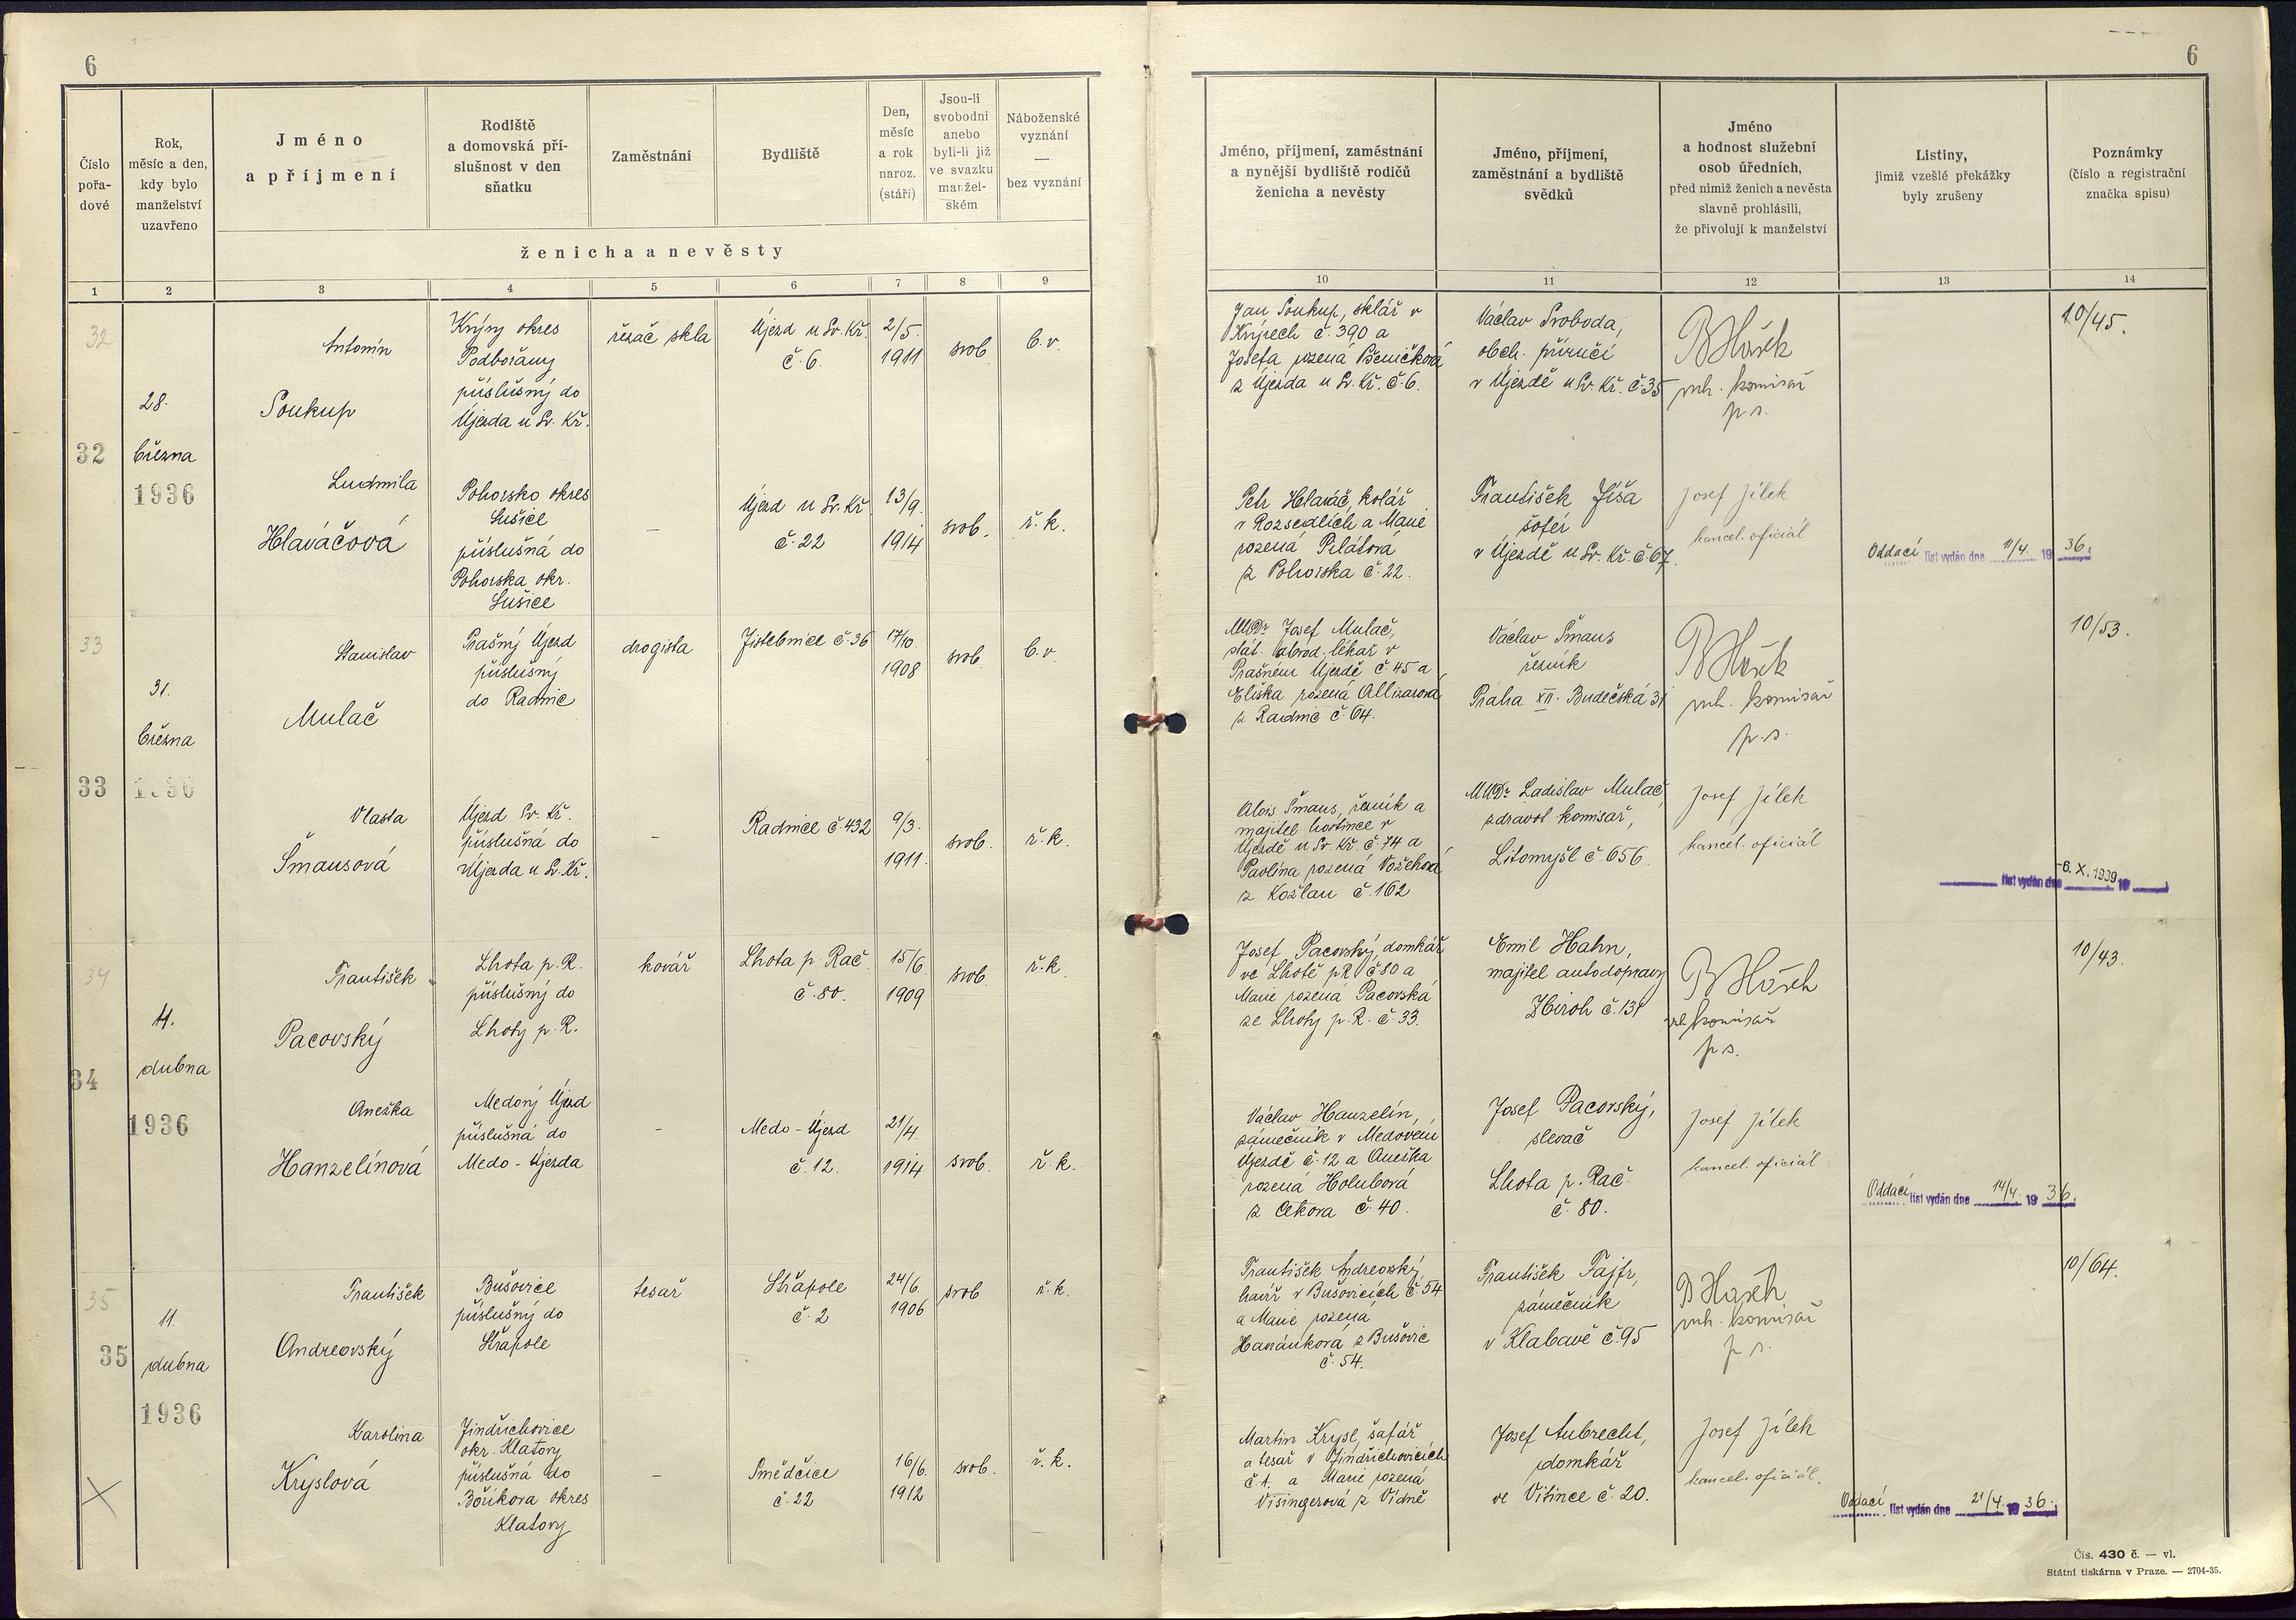 6
6
Číslo
pořa-
dové
Rok,
měsíc a den,
kdy bylo
manželství
uzavřeno
Jméno
a příjmení
Rodiště
a domovská pří-
slušnost v den
sňatku
Zaměstnání
Bydliště
Den,
měsíc
a rok
naroz.
(stáří)
Jsou-li
svobodni
anebo
byli-li již
ve svazku
manžel-
ském
Náboženské
vyznání
—
bez vyznání
ženicha a nevěsty
Jméno, příjmení, zaměstnání
a nynější bydliště rodičů
ženicha a nevěsty
Jméno, příjmení,
zaměstnání a bydliště
svědků
Jméno
a hodnost služební
osob úředních,
před nimiž ženich a nevěsta
slavně prohlásili,
že přivolují k manželství
Listiny,
jimiž vzešlé překážky
byly zrušeny
Poznámky
(číslo a registrační
značka spisu)
1 2 3 4 5 6 7 8 9 10 11 12 13 14
32
32
28.
března
1936
Antonín
Soukup
Krýry okres
Podbořany
příslušný do
Újezda u Sv. Kř.
řezač skla
Újezd u Sv. Kř.
č. 6.
2/5.
1911
svob
b. v.
Jan Soukup, sklář v
Krýrech č. 390 a
Josefa rozená Pšeničková
z Újezda u Sv. Kř. č. 6.
Václav Svoboda,
obch. příručí
v Újezdě u Sv. Kř. č 35
komisař
10/45.
Ludmila
Hlaváčová
Pohorsko okres
Sušice
příslušná do
Pohorska okr.
Sušice
–
Újezd u Sv. Kř
č. 22
13/9.
1914
svob.
ř. k.
Petr Hlaváč, kolář
v Rozsedlích a Marie
rozená Pilátová
z Pohorska č. 22.
František Jíša
šofér
v Újezdě u Sv. Kř. č 67.
Josef Jílek
kancel. oficiál
Oddací list vydán dne 11/4. 19 36.
33
33
31.
března
Stanislav
Mulač
Prašný Újezd
příslušný
do Radnic
drogista
Jistebnice č. 36
17/10.
1908
svob.
b. v
MUDr Josef Mulač,
stát. obvod. lékař v
Prašném Újezdě č 45 a
Eliška rozená
z Radnic č. 64.
Václav Šmaus
řezník
Praha XII. Budečská 31
komisař
10/53.
Vlasta
Šmausová
Újezd Sv. Kř.
příslušná do
Újezda u Sv. Kř.
–
Radnice č. 432
9/3.
1911.
svob.
ř. k.
Alois Šmaus, řezník a
majitel hostince v
Újezdě u Sv. Kř. č 74 a
Pavlína rozená
z Kožlan č. 162
MUDr Ladislav Mulač
zdravot komisař,
Litomyšl č 656.
Josef Jílek
kancel. oficiál
list vydán dne -6. X. 1939 19
34
34
11.
dubna
1936
František
Pacovský
Lhota p. R.
příslušný do
Lhoty p. R.
kovář
Lhota p. Rač
č. 80.
15/6.
1909
svob.
ř. k.
Josef Pacovský, domkář
ve Lhotě p R č 80 a
Marie rozená Pacovská
ze Lhoty p. R. č. 33.
Emil Hahn,
majitel autodopravy
Zbiroh č. 131
komisař
10/43.
Anežka
Hanzelínová
Medový Újezd
příslušná do
Medo - Újezda
–
Medo - Újezd
č. 12.
21/4.
1914
svob.
ř. k.
Václav Hanzelín,
zámečník v Medovém
Újezdě č. 12 a Anežka
rozená Holubová
z Cekova č. 40.
Josef Pacovský,
slevač
Lhota p. Rač.
č. 80.
Josef Jílek
kancel. oficiál
Oddací list vydán dne 14/4. 19 36.
35
35
11.
dubna
1936
František
Andreovský
Bušovice
příslušný do
Střapole
tesař
Střapole
č. 2
24/6.
1906
svob
ř. k.
František Andreovský,
havíř v Bušovicích č. 54
a Marie rozená
z Bušovic
č. 54.
František Fajfr,
zámečník
v Klabavě č. 95
komisař
10/64.
Karolina
Kryslová
Jindřichovice
okr. Klatovy
příslušná do
Bořikova okres
Klatovy
–
Smědčice
č. 22
16/6.
1912
svob.
ř. k.
Martin Krysl, šafář
a tesař v Jindřichovicích
č. 1. a Marie rozená
Visingerová z Vídně
Josef Aubrecht,
domkář
ve Vitince č. 20.
Josef Jílek
kancel. oficiál.
Oddací list vydán dne 21/4. 19 36.
Čís. 430 č. — vl.
Státní tiskárna v Praze. — 2704-35.